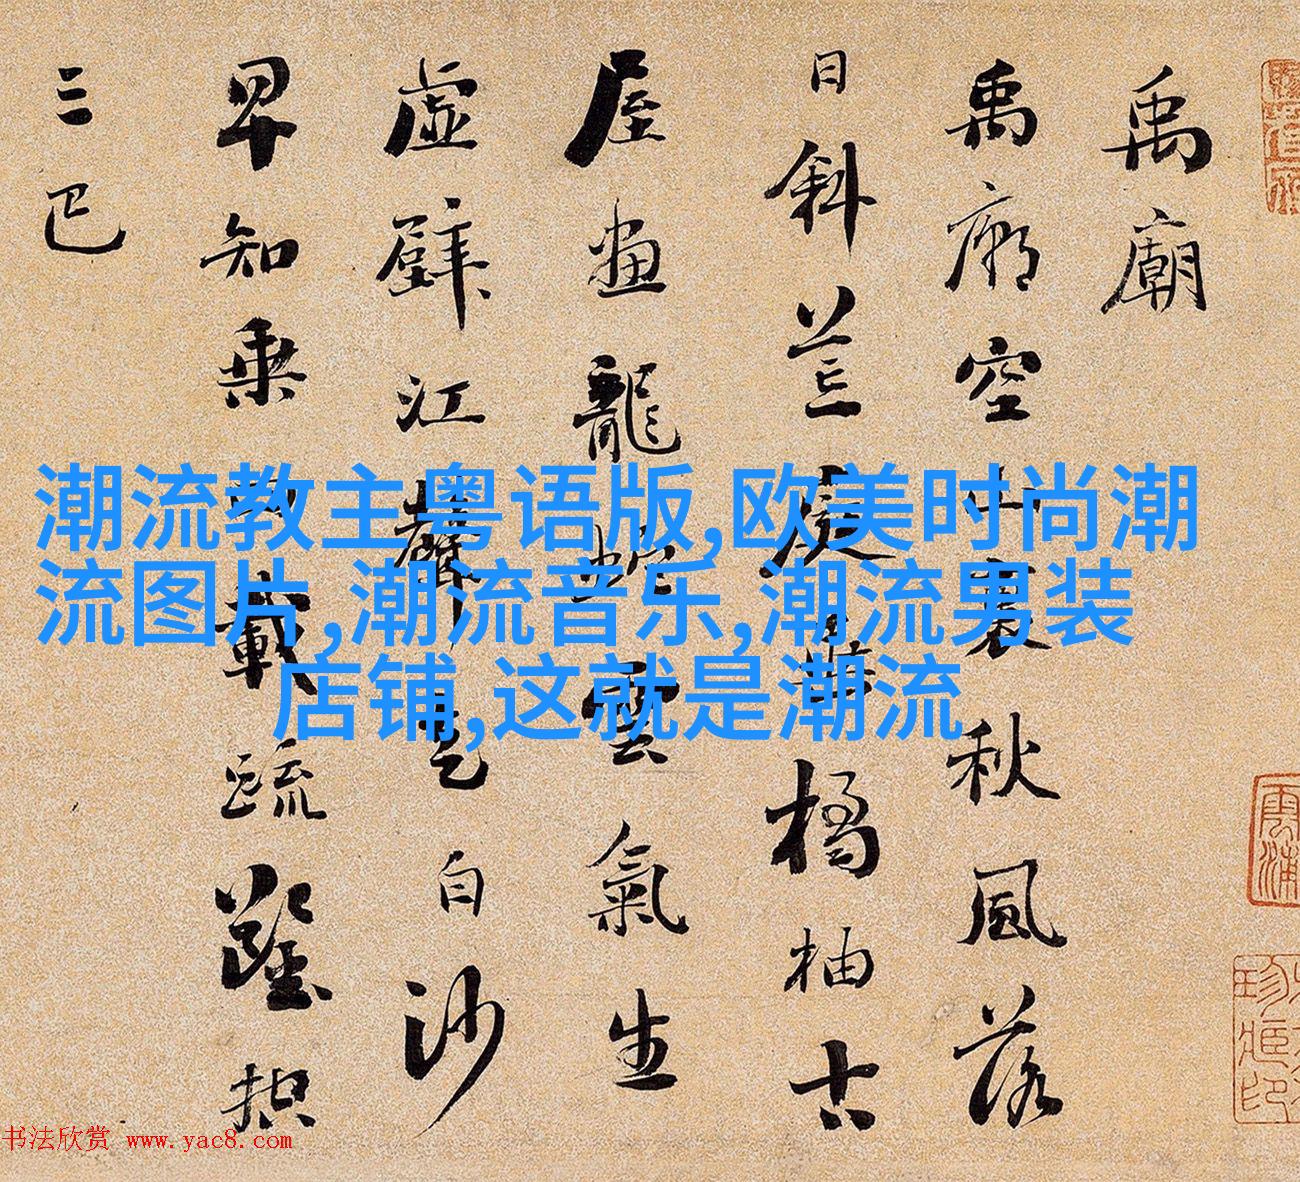 禹廟
禹廟空山裏秋風落
日斜荒庭垂橘柚古
屋畫龍蛇雲氣生
虛壁江聲走白沙
早知乘四載疏鑿控
三巴
潮流教主粤语版,欧美时尚潮
流图片,潮流音乐,潮流男装
店铺,这就是潮流
书法欣赏 www.yac8.com